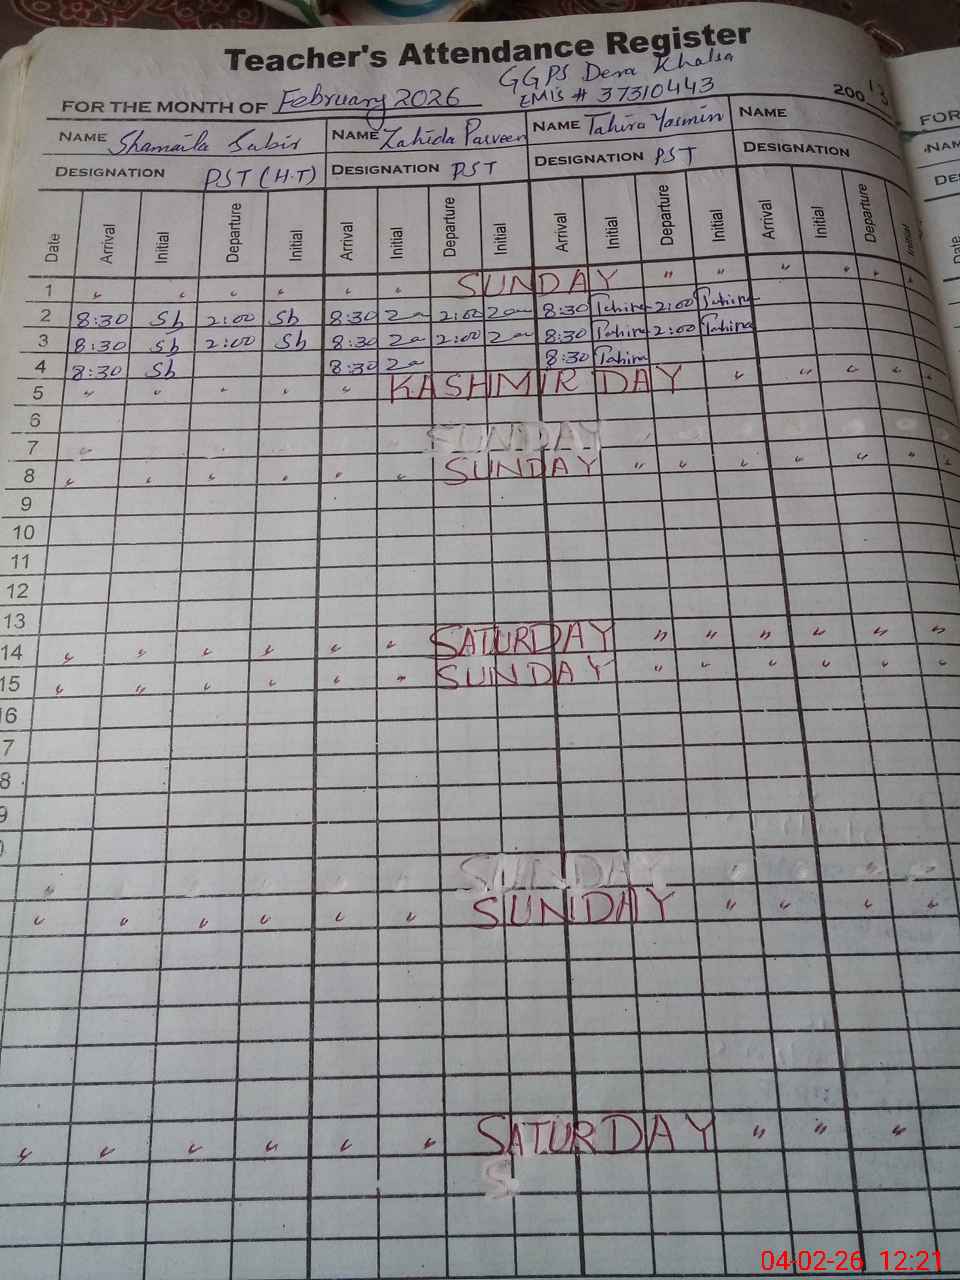 Teacher's Attendance Register
GGPS Dera Khalsa
EMIS # 37310443
FOR THE MONTH OF February 2026 200
NAME Shamaila Sabir NAME Zahida Parveen NAME Tahira Yasmin NAME
DESIGNATION PST (H.T) DESIGNATION PST DESIGNATION PST DESIGNATION
Date Arrival Initial Departure Initial Arrival Initial Departure Initial Arrival Initial Departure Initial Arrival Initial Departure Initial
1 " " " " " " SUNDAY " " " " " "
2 8:30 Sb 2:00 Sb 8:30 Za 2:00 Za 8:30 Tahira 2:00 Tahira
3 8:30 Sb 2:00 Sb 8:30 Za 2:00 Za 8:30 Tahira 2:00 Tahira
4 8:30 Sb 8:30 Za 8:30 Tahira
5 " " " " " KASHMIR DAY " " " " "
6
7 SUNDAY
8 " " " " " " SUNDAY " " " " " " "
9
10
11
12
13
14 " " " " " " SATURDAY " " " " " "
15 " " " " " " SUNDAY " " " " " "
16
7
8
9
SUNDAY
" " " " " " SUNDAY " " " "
" " " " " " SATURDAY " " "
S
04-02-26 12:21
FOR
NAM
DES
Date